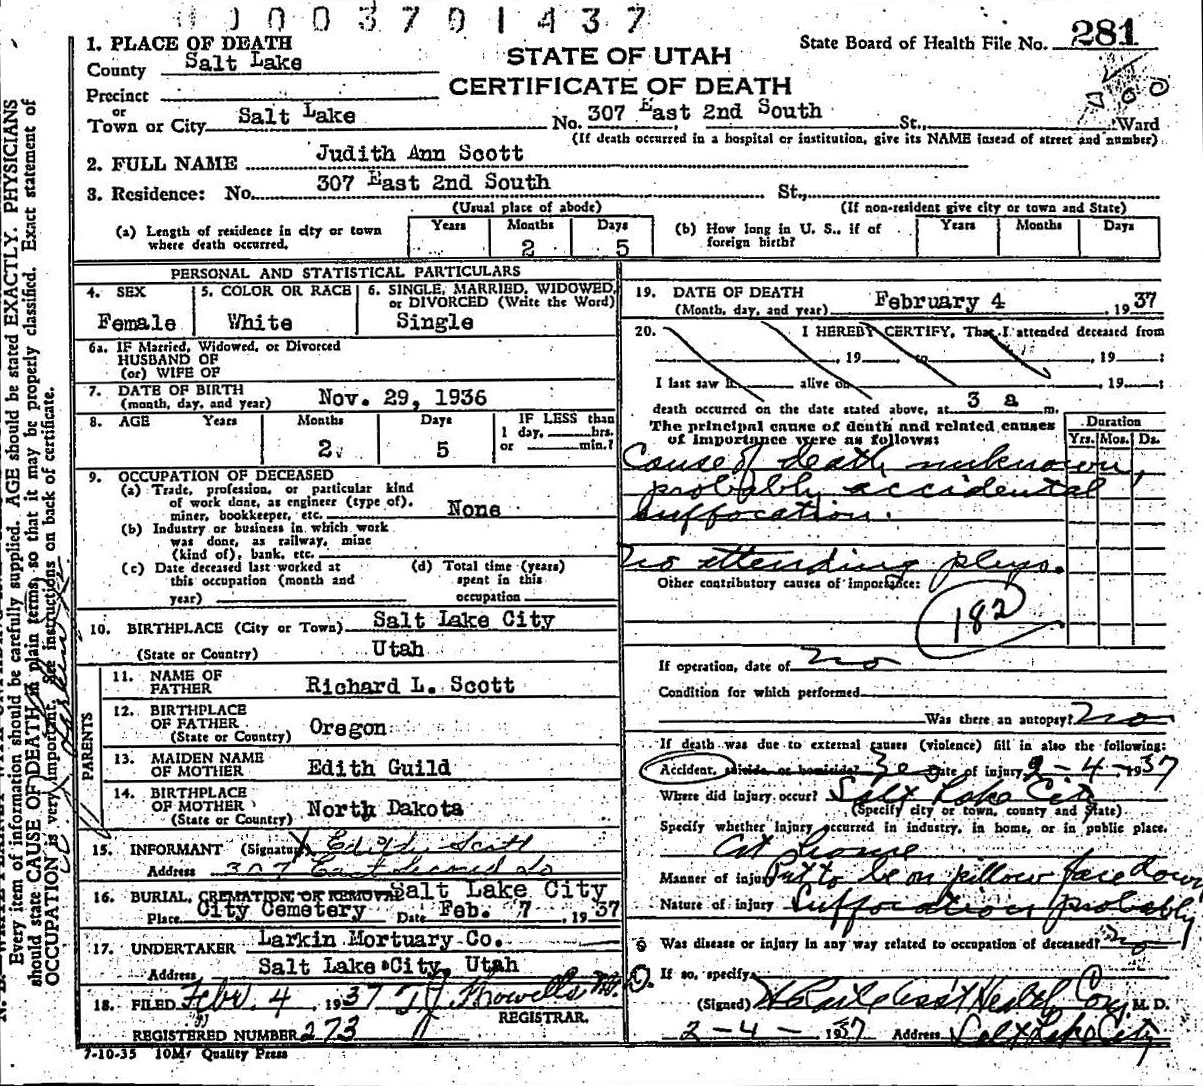 0003701437
1. PLACE OF DEATH
County Salt Lake
STATE OF UTAH
CERTIFICATE OF DEATH
State Board of Health File No. 281
Precinct
or
Town or City Salt Lake No. 307 East 2nd South St., Ward
(If death occurred in a hospital or institution, give its NAME instead of street and number)
2. FULL NAME Judith Ann Scott
3. Residence: No. 307 East 2nd South St.,
(Usual place of abode) (If non-resident give city or town and State)
(a) Length of residence in city or town where death occurred. Years Months 2 Days 5
(b) How long in U. S., if of foreign birth? Years Months Days
PERSONAL AND STATISTICAL PARTICULARS
4. SEX Female
5. COLOR OR RACE White
6. SINGLE, MARRIED, WIDOWED, or DIVORCED (Write the Word) Single
6a. IF Married, Widowed, or Divorced
HUSBAND OF
(or) WIFE OF
7. DATE OF BIRTH
(month, day, and year) Nov. 29, 1936
8. AGE Years Months 2 Days 5 IF LESS than
1 day, hrs.
or min.?
9. OCCUPATION OF DECEASED
(a) Trade, profession, or particular kind
of work done, as engineer (type of),
miner, bookkeeper, etc. None
(b) Industry or business in which work
was done, as railway, mine
(kind of), bank, etc.
(c) Date deceased last worked at
this occupation (month and
year)
(d) Total time (years)
spent in this
occupation
10. BIRTHPLACE (City or Town) Salt Lake City
(State or Country) Utah
PARENTS
11. NAME OF
FATHER Richard L. Scott
12. BIRTHPLACE
OF FATHER
(State or Country) Oregon
13. MAIDEN NAME
OF MOTHER Edith Guild
14. BIRTHPLACE
OF MOTHER
(State or Country) North Dakota
15. INFORMANT (Signature) X Edith Scott
Address 307 East Second So
16. BURIAL, CREMATION OR REMOVAL Salt Lake City
Place City Cemetery Date Feb. 7, 1937
17. UNDERTAKER Larkin Mortuary Co.
Address Salt Lake City, Utah
18. FILED Febr. 4 1937 T J Howells
REGISTRAR.
REGISTERED NUMBER 273
7-10-35 10M Quality Press
19. DATE OF DEATH
(Month, day, and year) February 4, 1937
20. I HEREBY CERTIFY, That I attended deceased from
, 19 to , 19 ;
I last saw h alive on , 19 ;
death occurred on the date stated above, at 3 a m.
The principal cause of death and related causes
of importance were as follows:
Duration
Yrs. Mos. Ds.
Cause of death unknown,
probably accidental
suffocation.
No attending phys.
Other contributory causes of importance:
182
If operation, date of no
Condition for which performed
Was there an autopsy? no
If death was due to external causes (violence) fill in also the following:
Accident, suicide or homicide? Date of injury 2-4-1937
Where did injury occur? Salt Lake City
(Specify city or town, county and State)
Specify whether injury occurred in industry, in home, or in public place.
At home
Manner of injury Put to be on pillow face down
Nature of injury Suffocation probably
Was disease or injury in any way related to occupation of deceased? no
If so, specify
(Signed) Health Com, M. D.
2-4-1937 Address Salt Lake City
Every item of information should be carefully supplied. AGE should be stated EXACTLY. PHYSICIANS
should state CAUSE OF DEATH in plain terms, so that it may be properly classified. Exact statement of
OCCUPATION is very important. See instructions on back of certificate.